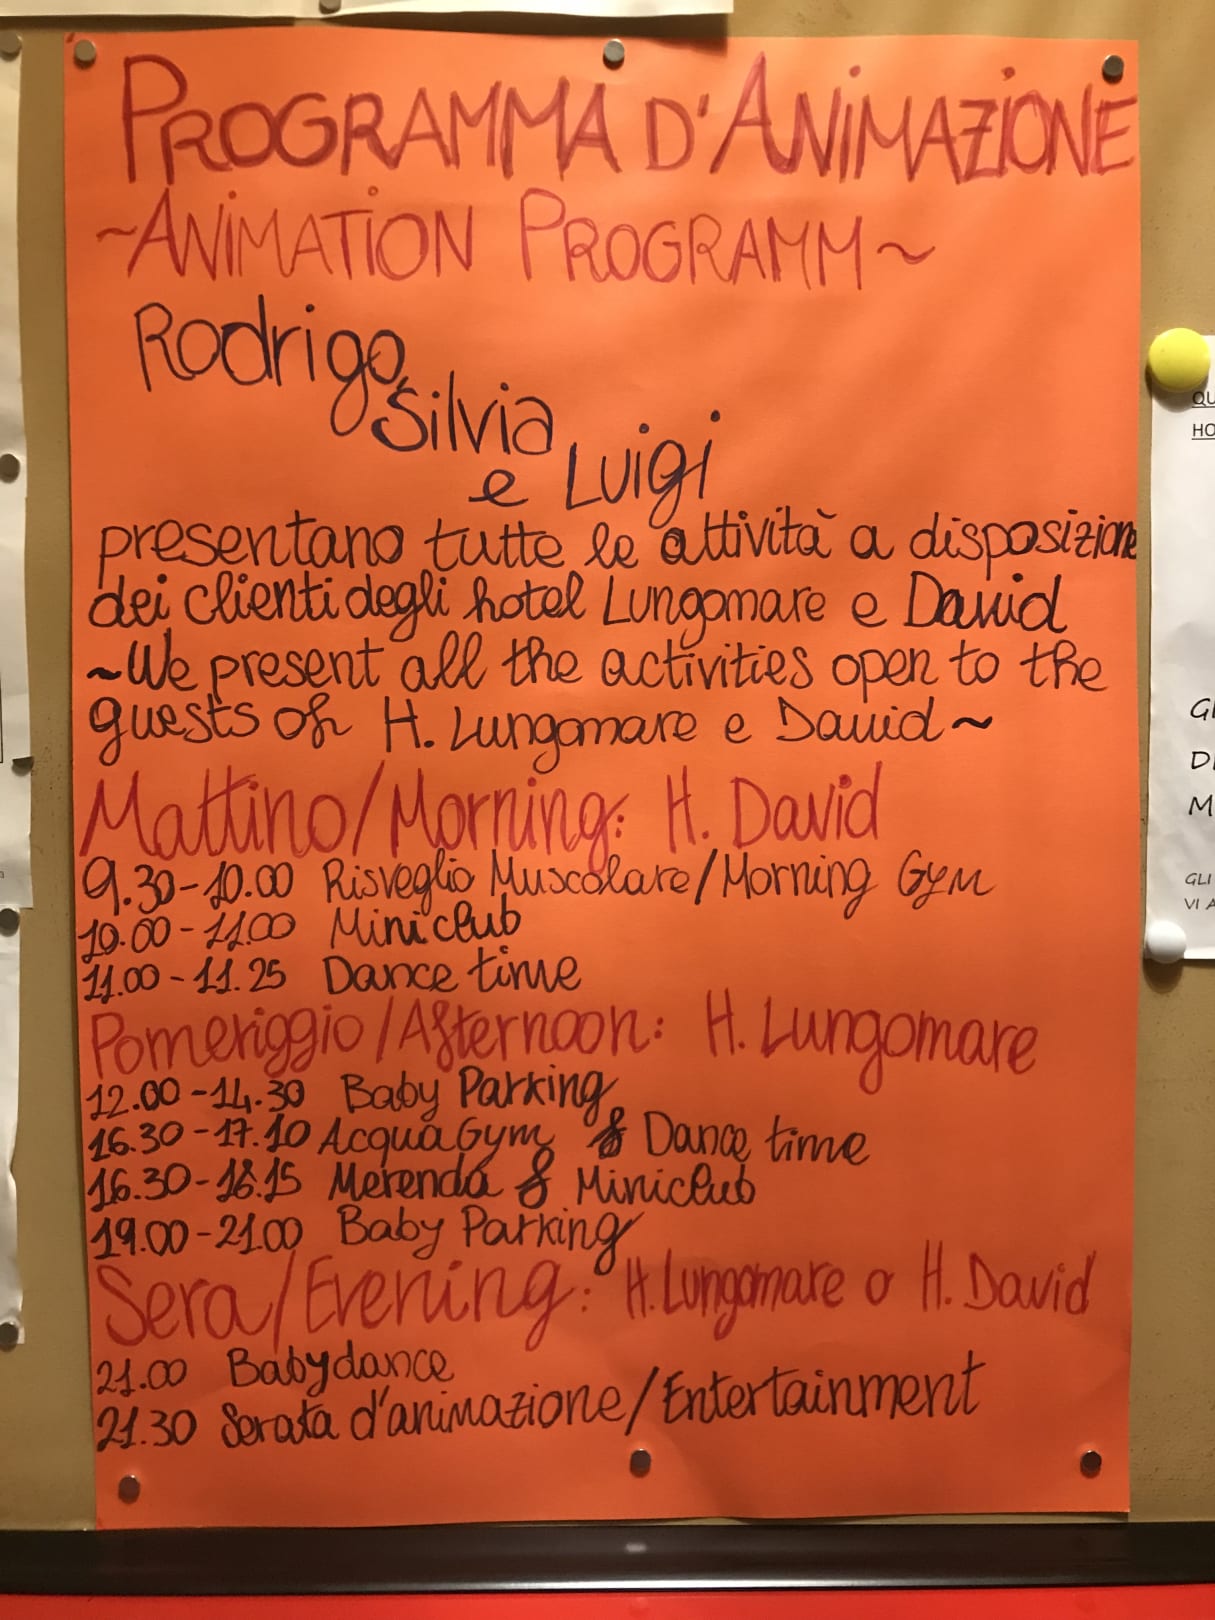 PROGRAMMA D'ANIMAZIONE
~ANIMATION PROGRAMM~
Rodrigo,
Silvia
e Luigi
presentano tutte le attività a disposizione
dei clienti degli hotel Lungomare e David
~We present all the activities open to the
guests of H. Lungomare e David~
Mattino/Morning: H. David
9.30-10.00 Risveglio Muscolare/Morning Gym
10.00-11.00 Miniclub
11.00-11.25 Dance time
Pomeriggio/Afternoon: H. Lungomare
12.00-14.30 Baby Parking
16.30-17.10 AcquaGym & Dance time
16.30-18.15 Merenda & Miniclub
19.00-21.00 Baby Parking
Sera/Evening: H. Lungomare o H. David
21.00 Babydance
21.30 Serata d'animazione/Entertainment
QU
HO
DI
GLI
VI A